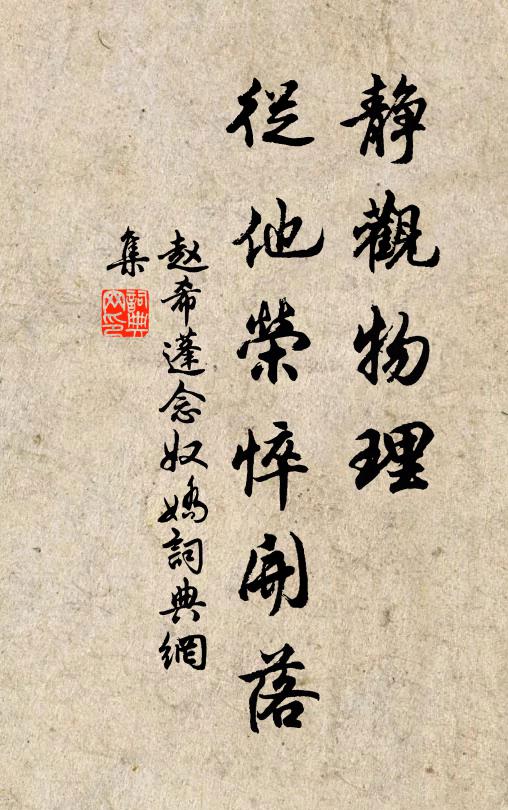 静觀物理
從他榮悴開落
赵希蓬念奴嬌詞典網
集
詞典
网印